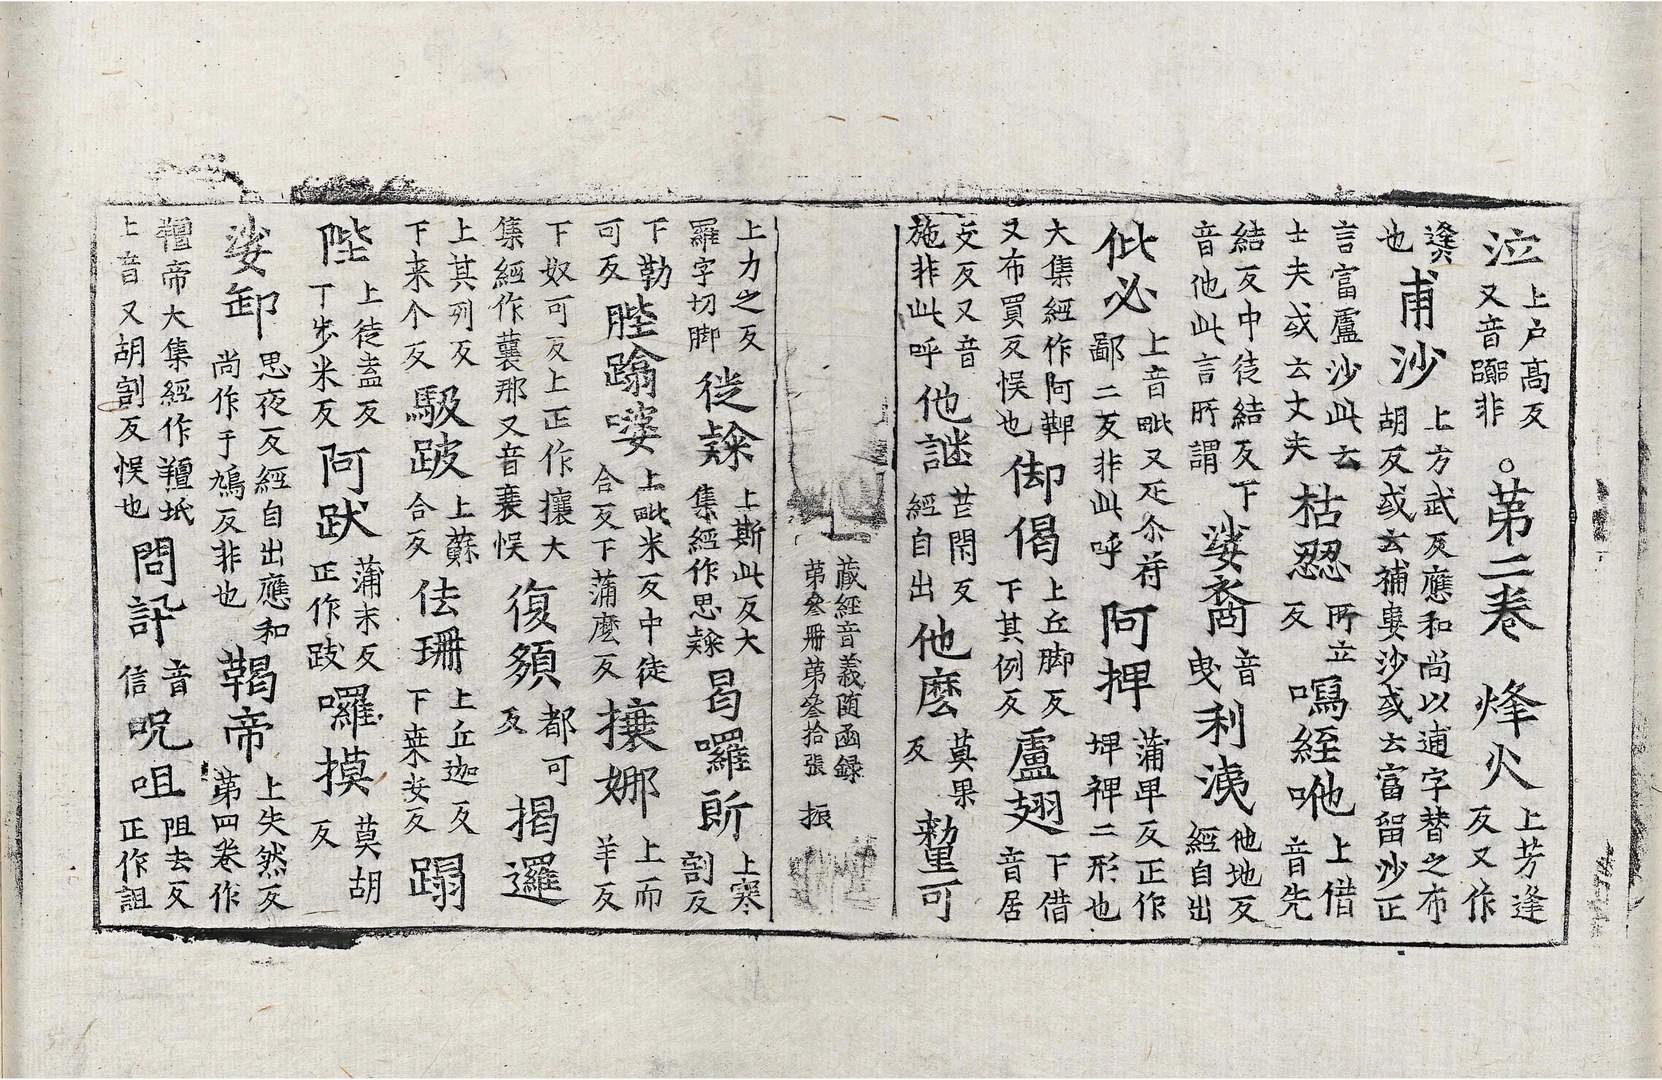 泣上戸髙反又音躃非○苐二卷　烽火上芳逢反又作
㷭也甫沙上方武反應和尚以逋字替之布胡反或云補婁沙或云富留沙正
言富盧沙此云士夫或云丈夫枯㸾所立反嗚絰咃上借音先
結反中徒結反下音他此言所謂娑裔音曳利洟他地反經自出
仳必上音毗又疋尒苻鄙二反非此呼阿押蒲甲反正作埤裨二形也
大集經作阿鞞又布買反悮也御偈上丘脚反下其例反盧翅下借音居
支反又音施非此呼他謎莒閇反經自出他麽莫果反勑里可
藏經音義随函録
第叄冊第叄拾張　振
上力之反羅字切脚徙𨽻上斯此反大集經作思𨽻曷囉所上寒割反
下勒可反膣蹹嘙上毗米反中徒合反下蒲麽反攘娜上而羊反
下奴可反上正作攘大集經作蘘那又音襄悮復頞都可反揭邏
上其列反下来个反馺跛上蘇合反佉珊上丘迦反下桒安反蹋
陛上徒盍反下步米反阿跋蒲末反正作跋囉摸莫胡反
娑卸思夜反經自出應和尚作于鳩反非也鞨帝上失然反第四卷作
羶帝大集經作羶坻上音又胡割反悮也問訙音信呪咀阻去反正作詛